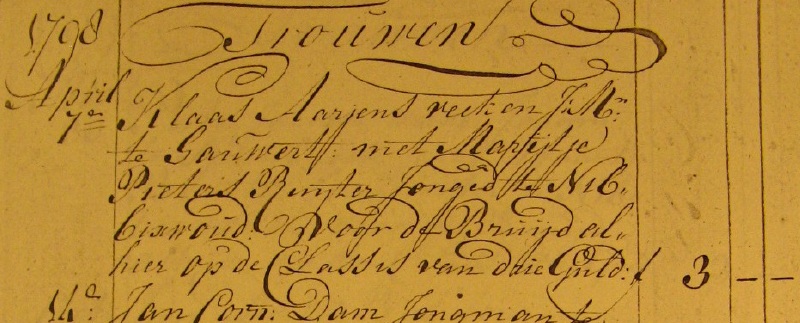 1798 Trouwen
April
7en Klaas Aarjens veeken J:Mn
te Gaùwert: met Marijtje
Pieters Ruijter Jonged te Nib,
bixwoud. Voor de Bruijd al,
hier op de Classis van drie Guld: f 3 – –
14en Jan Corn: Dam Jongman te